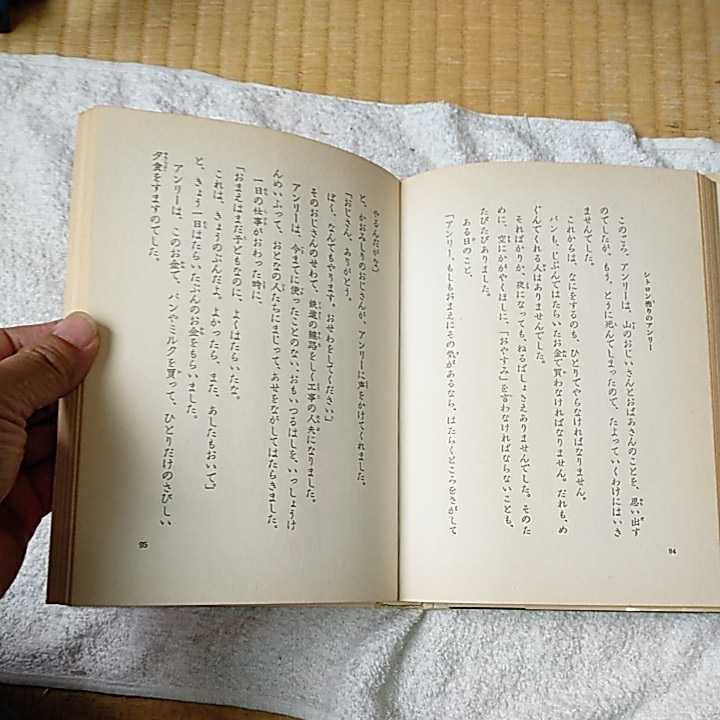 シトロン売りのアンリー
このごろ、アンリーは、山のおじいさんとおばあさんのことを、思い出す
のでしたが、もう、とうに死んでしまったので、たよっていくわけにはいき
ませんでした。
これからは、なにをするのも、ひとりでやらなければなりません。
パンも、じぶんではたらいたお金で買わなければなりません。だれも、め
ぐんでくれる人はありませんでした。
そればかりか、夜になっても、ねるばしょさえありませんでした。そのた
めに、空にかがやくほしに、「おやすみ」を言わなければならないことも、
たびたびありました。
ある日のこと、
「アンリー、もしもおまえにその気があるなら、はたらくところをさがして
94
やるんだがな」
と、かおみしりのおじさんが、アンリーに声をかけてくれました。
「おじさん、ありがとう。
ぼく、なんでもやります。おせわをしてください」
そのおじさんのせわで、鉄道の線路をしく工事の人夫になりました。
アンリーは、今までに使ったことのない、おもいつるはしを、いっしょうけ
んめいふって、おとなの人たちにまじって、あせをながしてはたらきました。
一日の仕事がおわった時に、
「おまえはまだ子どもなのに、よくはたらいたな。
これは、きょうのぶんだよ。よかったら、また、あしたもおいで」
と、きょう一日はたらいたぶんのお金をもらいました。
アンリーは、このお金で、パンやミルクを買って、ひとりだけのさびしい
夕食をすますのでした。
95